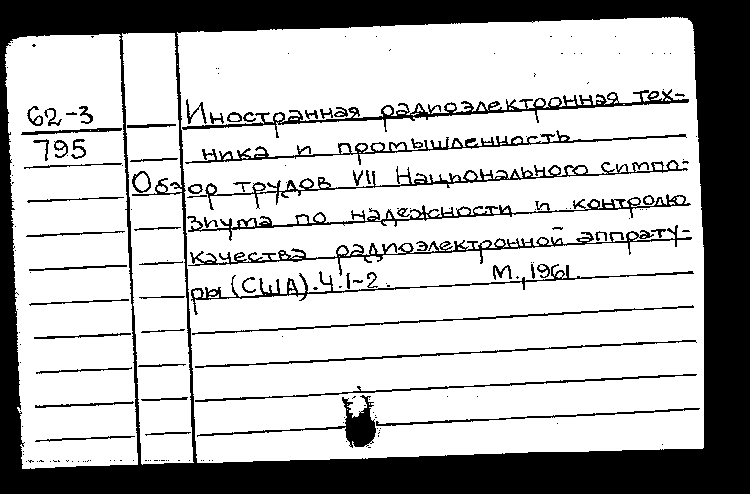 62-3 Иностранная радиоэлектронная тех-
795 ника и промышленность
Обзор трудов VII Национального симпо-
зиума по надежности и контролю
качества радиоэлектронной аппрату-
ры (США). Ч.1-2. М., 1961.